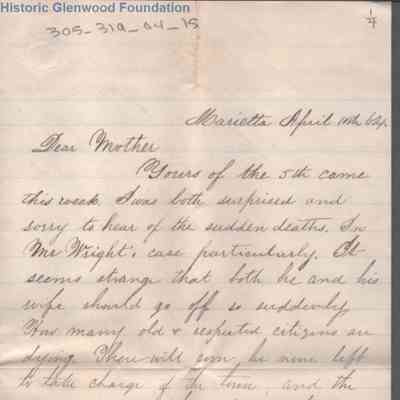 Historic Glenwood Foundation
305-319-04-15
1/4
Marietta April 10th 64.
Dear Mother
Yours of the 5th came
this week. I was both surprised and
sorry to hear of the sudden deaths. In
Mr Wright's case particularly. It
seems strange that both he and his
wife should go off so suddenly
How many old & respected citizens are
dying. There will soon be none left
to take charge of the town, and the